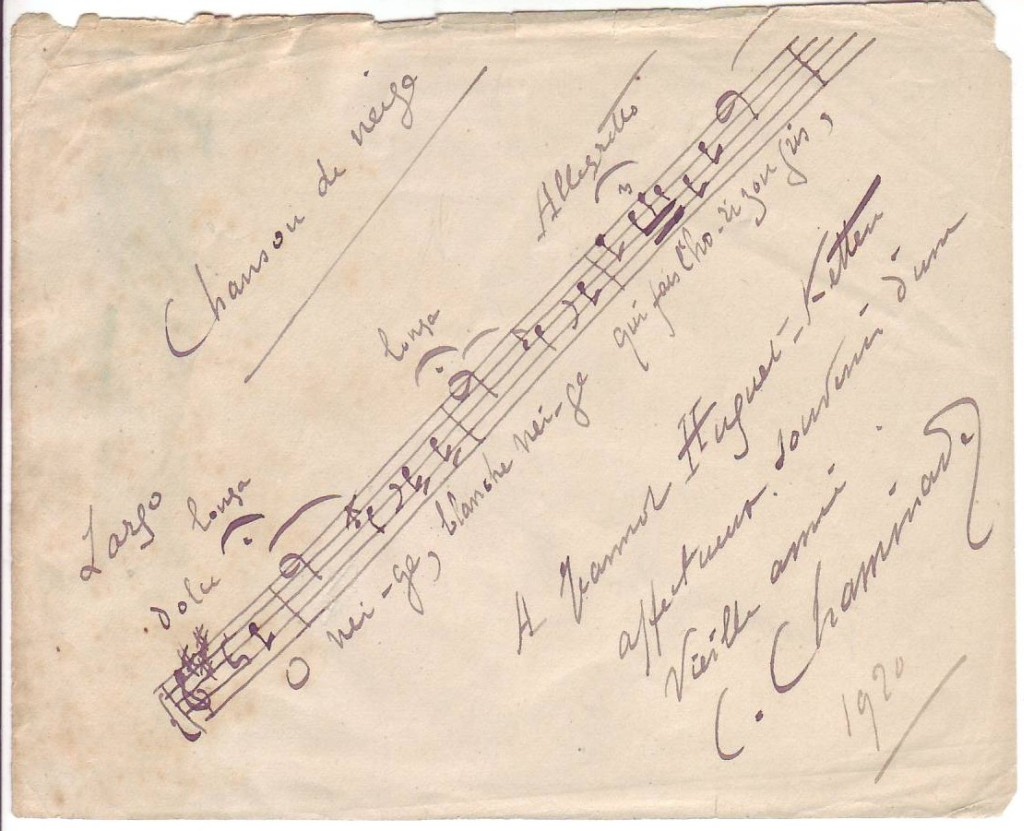 Chanson de neige
Largo
Allegretto
dolce longa
longa
3
O nei-ge, blanche nei-ge qui fais l'ho-ri-zon gris,
A Huguet-Ketten
affectueux souvenir d'une
vieille amie
C. Chaminade
1920